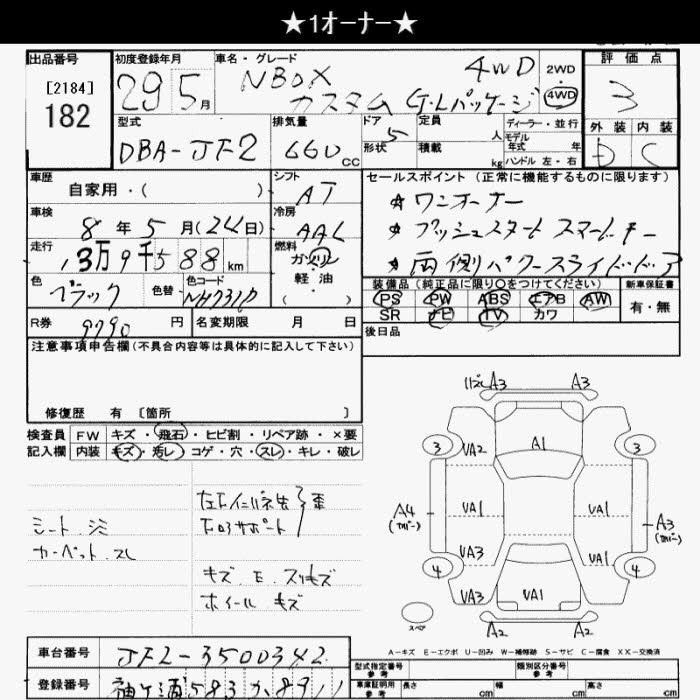 ★1オーナー★
出品番号 [2184] 182
初度登録年月 29 5月
車名・グレード NBOX 4WD
カスタム G・Lパッケージ
2WD 4WD
評価点 3
外装 D 内装 C
型式 DBA-JF2
排気量 660cc
ドア形状 5
定員 人
積載 kg
ディーラー・並行
モデル年式 年式
ハンドル 左・右
車歴 自家用・( )
シフト AT
車検 8年 5月(24日)
冷房 AAC
走行 13万9千588km
燃料 ガソリン・軽油 ( )
色 ブラック 色替 色コード NH731P
R券 9790円 名変期限 月 日
セールスポイント (正常に機能するものに限ります)
★ワンオーナー
★プッシュスタート スマートキー
★両側パワースライドドア
装備品(純正品に限り○をつけてください) 新車保証書
PS PW ABS エアB AW 有・無
SR ナビ TV カワ
後日品
注意事項申告欄(不具合内容等は具体的に記入して下さい)
修復歴 有 〔箇所 〕
検査員記入欄 FW キズ・飛石・ヒビ割・リペア跡・×要
内装 キズ・汚レ・コゲ・穴・スレ・キレ・破レ
シート シミ
カーペット スレ
キズ E スリキズ
ホイール キズ
A3 A3
3 VA2 A1 3
A4 VA1 VA1 A3
VA3 VA1
4 4
VA3 VA1
スペア A2 A2
A-キズ E-エクボ U-凹み W-補修跡 S-サビ C-腐食 XX-交換済
車台番号 JF2-3500342
登録番号 袖ケ浦583か8911
型式指定番号 参考 類別区分番号 参考
車庫証明用 参考 長さ cm 幅 cm 高さ cm